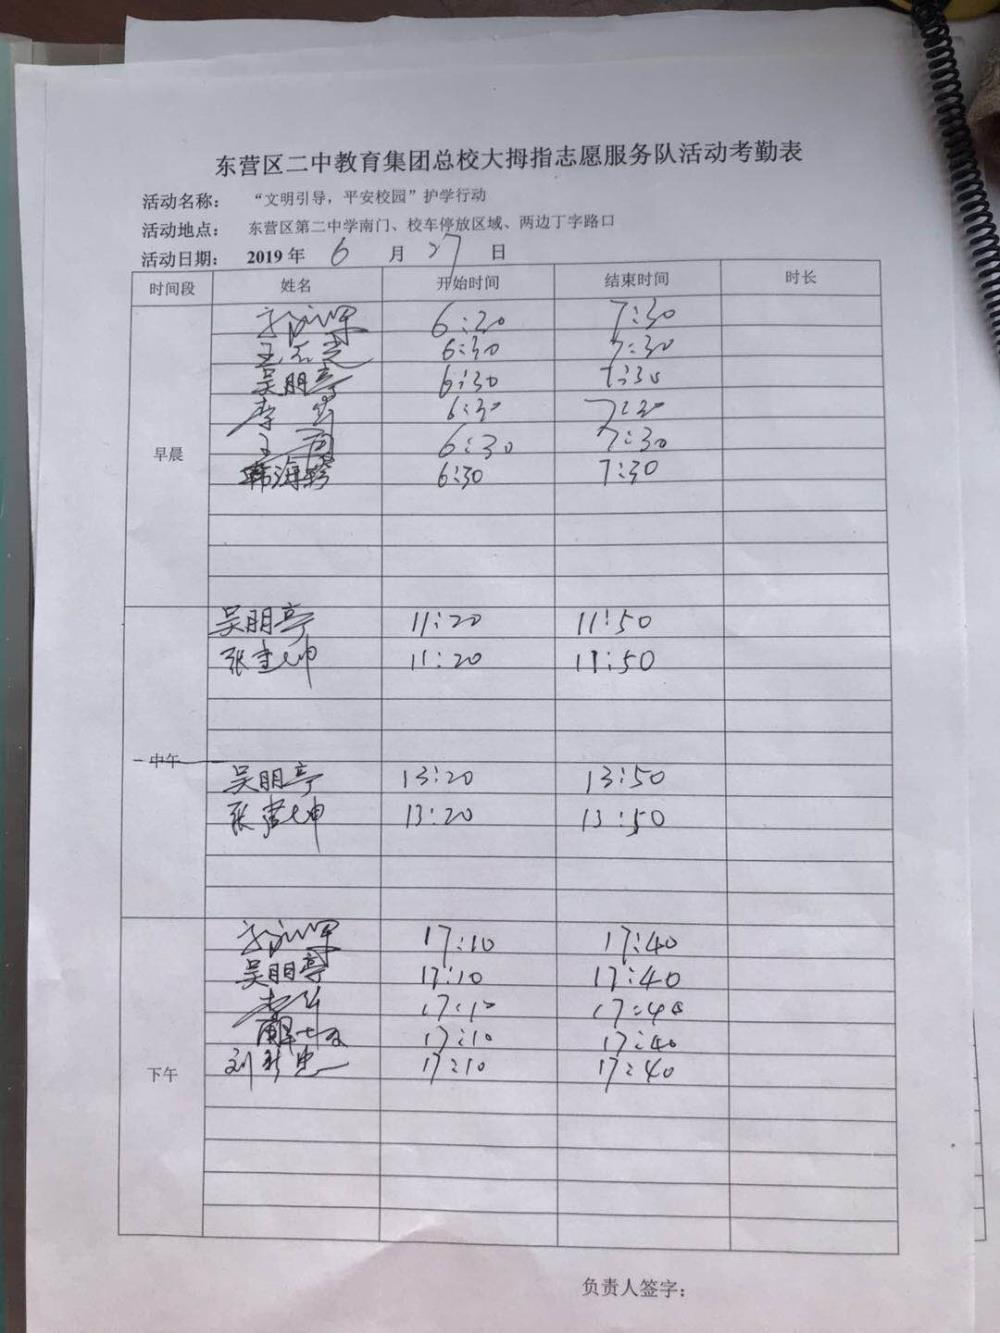 东营区二中教育集团总校大拇指志愿服务队活动考勤表
活动名称： “文明引导，平安校园”护学行动
活动地点： 东营区第二中学南门、校车停放区域、两边丁字路口
活动日期： 2019 年 6 月 27 日
时间段 姓名 开始时间 结束时间 时长
6:20 7:30
6:30 7:30
吴朋亭 6:30 7:30
李 6:30 7:30
王 6:30 7:30
早晨
韩海 6:30 7:30
吴朋亭 11:20 11:50
张 坤 11:20 11:50
中午
吴朋亭 13:20 13:50
张 坤 13:20 13:50
17:10 17:40
吴朋亭 17:10 17:40
李 17:10 17:40
17:10 17:40
刘 忠 17:10 17:40
下午
负责人签字：